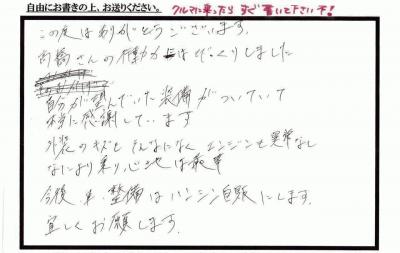 自由にお書きの上、お送りください。 クルマに乗ったら すぐ 書いて下さいネ!
この度はありがとうございます。
高橋さんの行動力にはびっくりしました
自分が望んでいた装備がついていて
本当に感謝しています
外装のキズもそんなになく エンジンも異常なし
なにより乗り心地は最高
今後 車 整備はハンシン自販にします。
宜しくお願します。